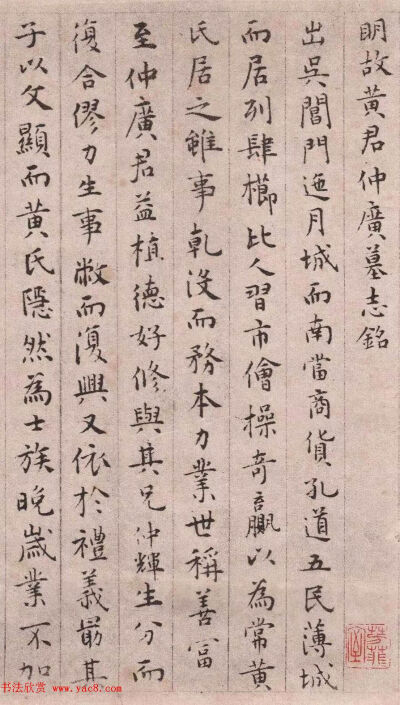 明故黄君仲廣墓志銘
出吳閶門迤月城而南當商貨孔道五民薄城
而居列肆櫛比人習市儈操奇贏以為常黄
氏居之雖事乹没而務本力業世稱善富
至仲廣君益植德好修與其兄仲輝生分而
復合僇力生事敝而復興又依於禮義嚴其
子以文顯而黄氏隱然為士族晚歲業不加
书法欣赏 www.yac8.com